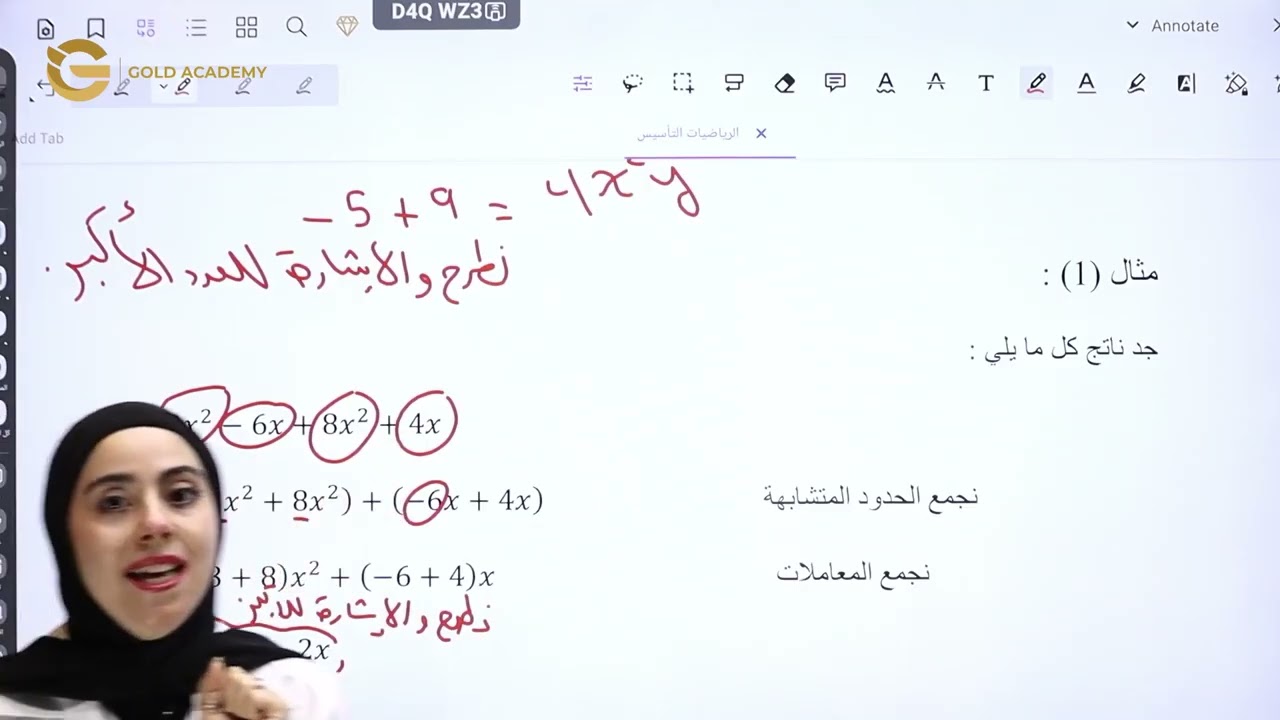 D4Q WZ3
Annotate
GOLD ACADEMY
T
A
Add Tab
الرياضيات التأسيس
- 5 + 9 = 4x²y
نطرح والإشارة للعدد الأكبر.
مثال (1) :
جد ناتج كل ما يلي :
x² − 6x + 8x² + 4x
x² + 8x²) + (−6x + 4x)
نجمع الحدود المتشابهة
+ 8)x² + (−6 + 4)x
نجمع المعاملات
نطرح والإشارة للأكبر
2x